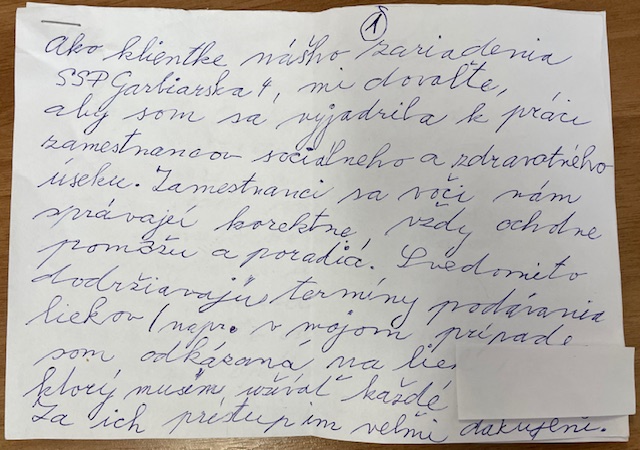 1
Ako klientke nášho zariadenia
SSP Garbiarska 4, mi dovoľte,
aby som sa vyjadrila k práci
zamestnancov sociálneho a zdravotného
úseku. Zamestnanci sa voči nám
správajú korektne, vždy ochotne
pomôžu a poradia. Svedomito
dodržiavajú termíny podávania
liekov (napr. v mojom prípade
som odkázaná na
ktorý musím užívať každé
Za ich prístup im veľmi ďakujem.